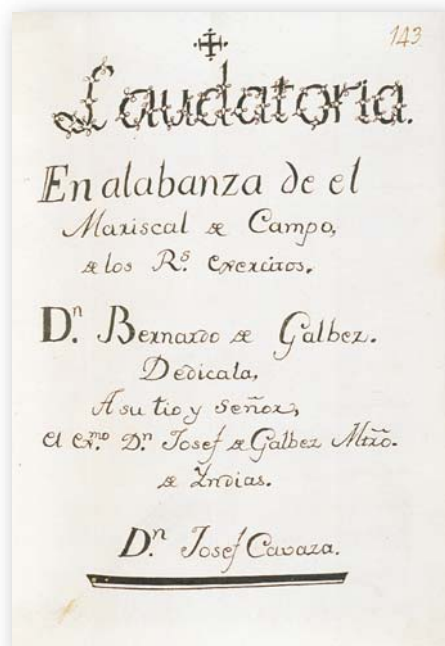 143
Laudatoria.
En alabanza de el
Mariscal de Campo,
de los R.s Exercitos.
D.n Bernardo de Galbez.
Dedicala,
A su tio y Señor,
el Ex.mo D.n Josef de Galbez Mtrõ.
de Yndias.
D.n Josef Cavaza.